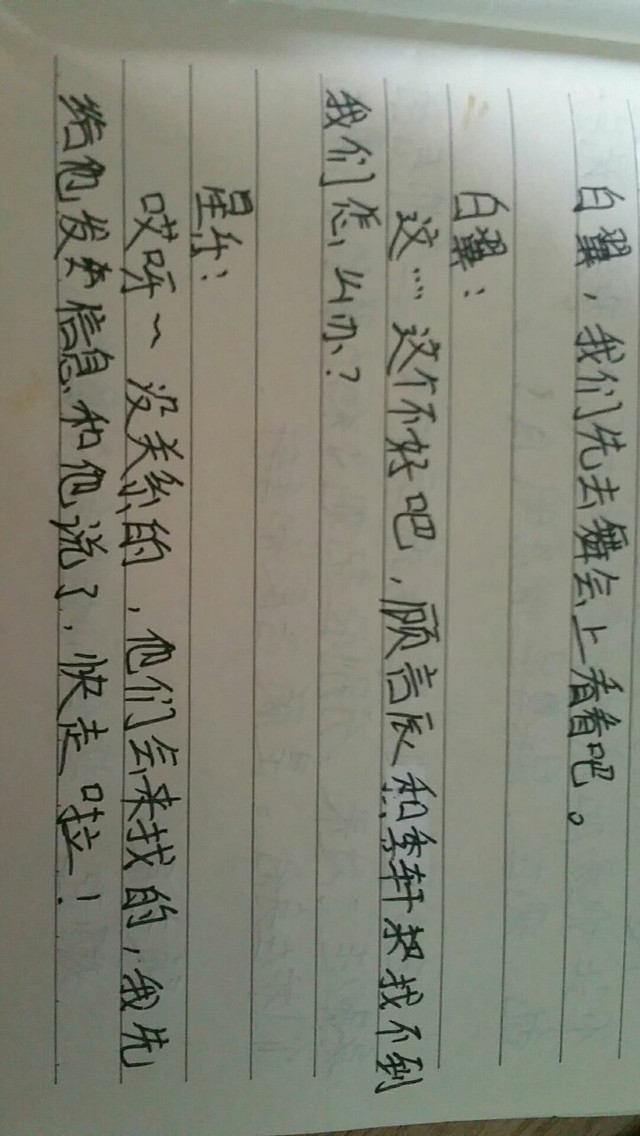 白翼，我们先去舞会上看看吧。
白翼：
这……这个不好吧，顾言辰和李轩招找不到
我们怎么办？
星乐：
哎呀～没关系的，他们会来找的，我先
给他发条信息和他说了，快走啦！